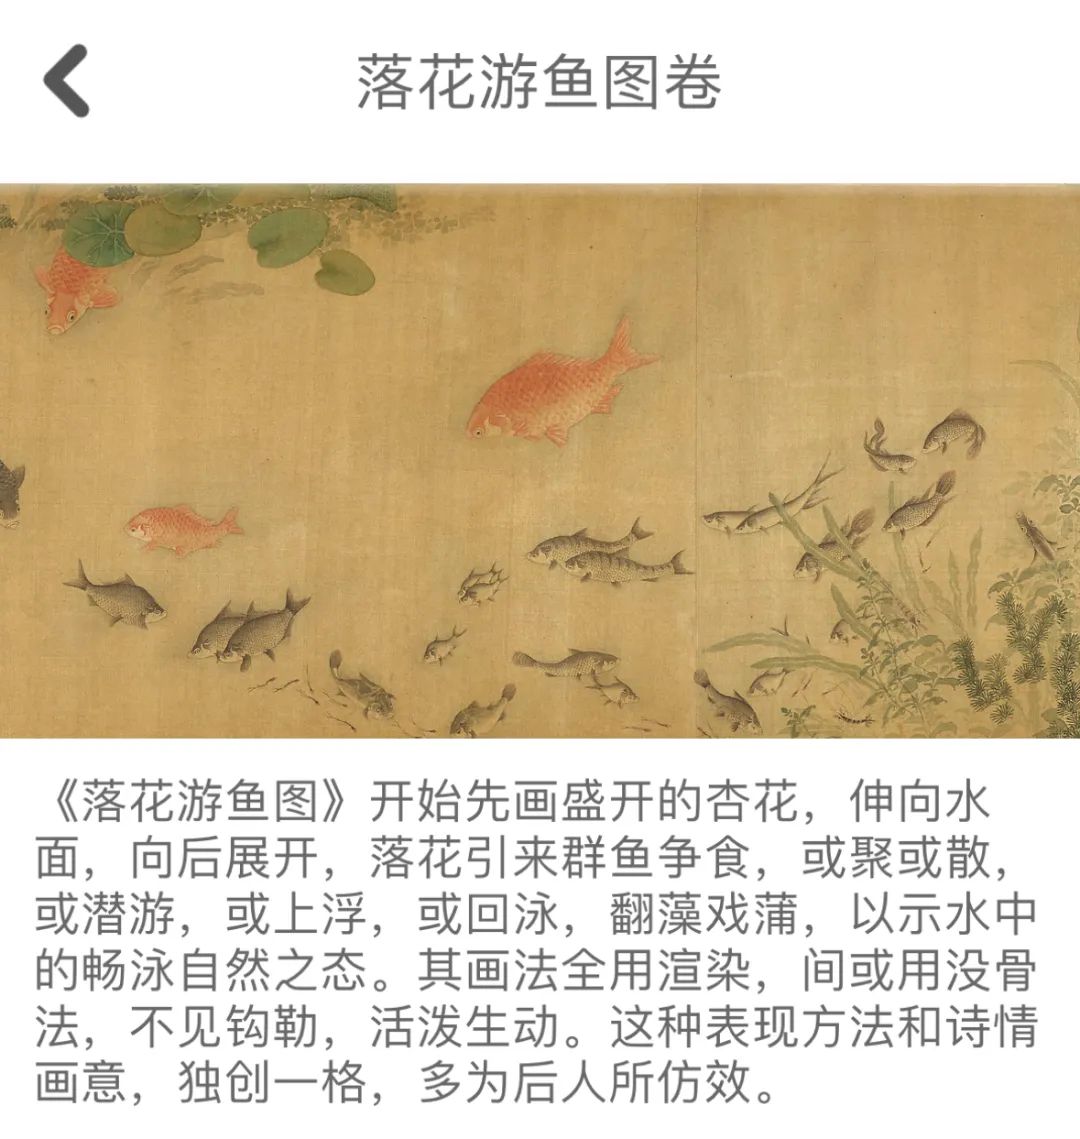 落花游鱼图卷
《落花游鱼图》开始先画盛开的杏花，伸向水
面，向后展开，落花引来群鱼争食，或聚或散，
或潜游，或上浮，或回泳，翻藻戏蒲，以示水中
的畅泳自然之态。其画法全用渲染，间或用没骨
法，不见钩勒，活泼生动。这种表现方法和诗情
画意，独创一格，多为后人所仿效。